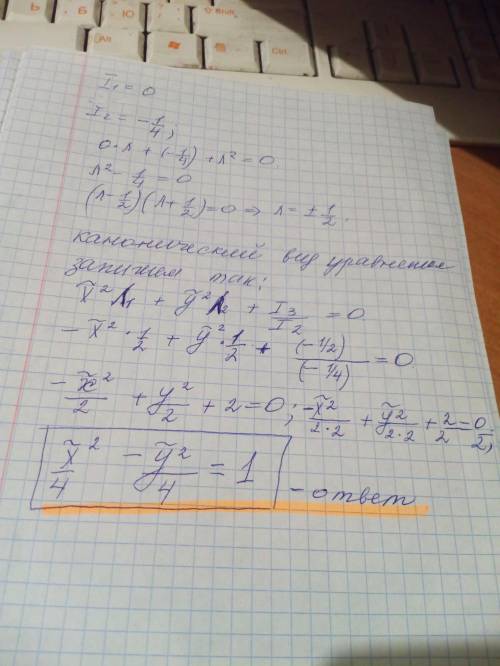 Ю Shift
Alt Ctrl
I₁ = 0
I₂ = -1/4;
0·λ + (-1/4) + λ² = 0
λ² - 1/4 = 0
(λ - 1/2)(λ + 1/2) = 0 ⇒ λ = ± 1/2.
канонический вид уравнения
запишем так:
x̃² λ₁ + ỹ² λ₂ + I₃/I₂ = 0
- x̃² · 1/2 + ỹ² · 1/2 + (-1/2)/(-1/4) = 0
- x̃²/2 + y²/2 + 2 = 0; -x̃²/2·2 + ỹ²/2·2 + 2/2 = 0/2;
x̃²/4 - ỹ²/4 = 1 - ответ